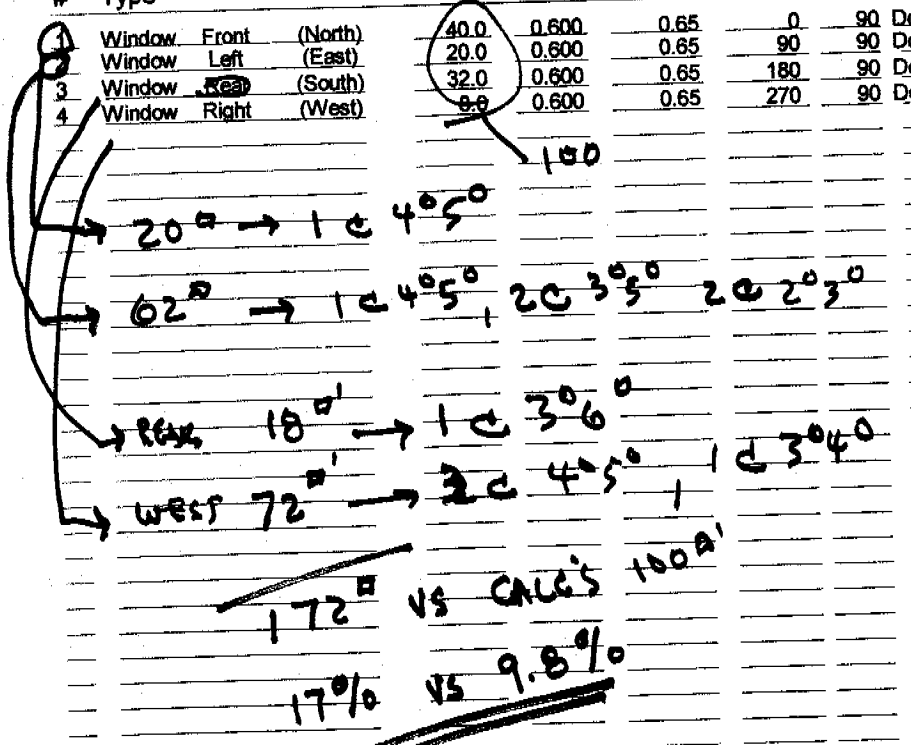 # Type
1 Window Front (North) 40.0 0.600 0.65 0 90 De
2 Window Left (East) 20.0 0.600 0.65 90 90 De
3 Window Rear (South) 32.0 0.600 0.65 180 90 De
4 Window Right (West) 8.0 0.600 0.65 270 90 De
100
20□ → 1 @ 4⁰5⁰
62□ → 1 @ 4⁰5⁰, 2 @ 3⁰5⁰ 2 @ 2⁰3⁰
REAR 18□' → 1 @ 3⁰6⁰
WEST 72□' → 3 @ 4⁰5⁰, 1 @ 3⁰4⁰
172□ VS CALC'S 100□'
17% VS 9.8%